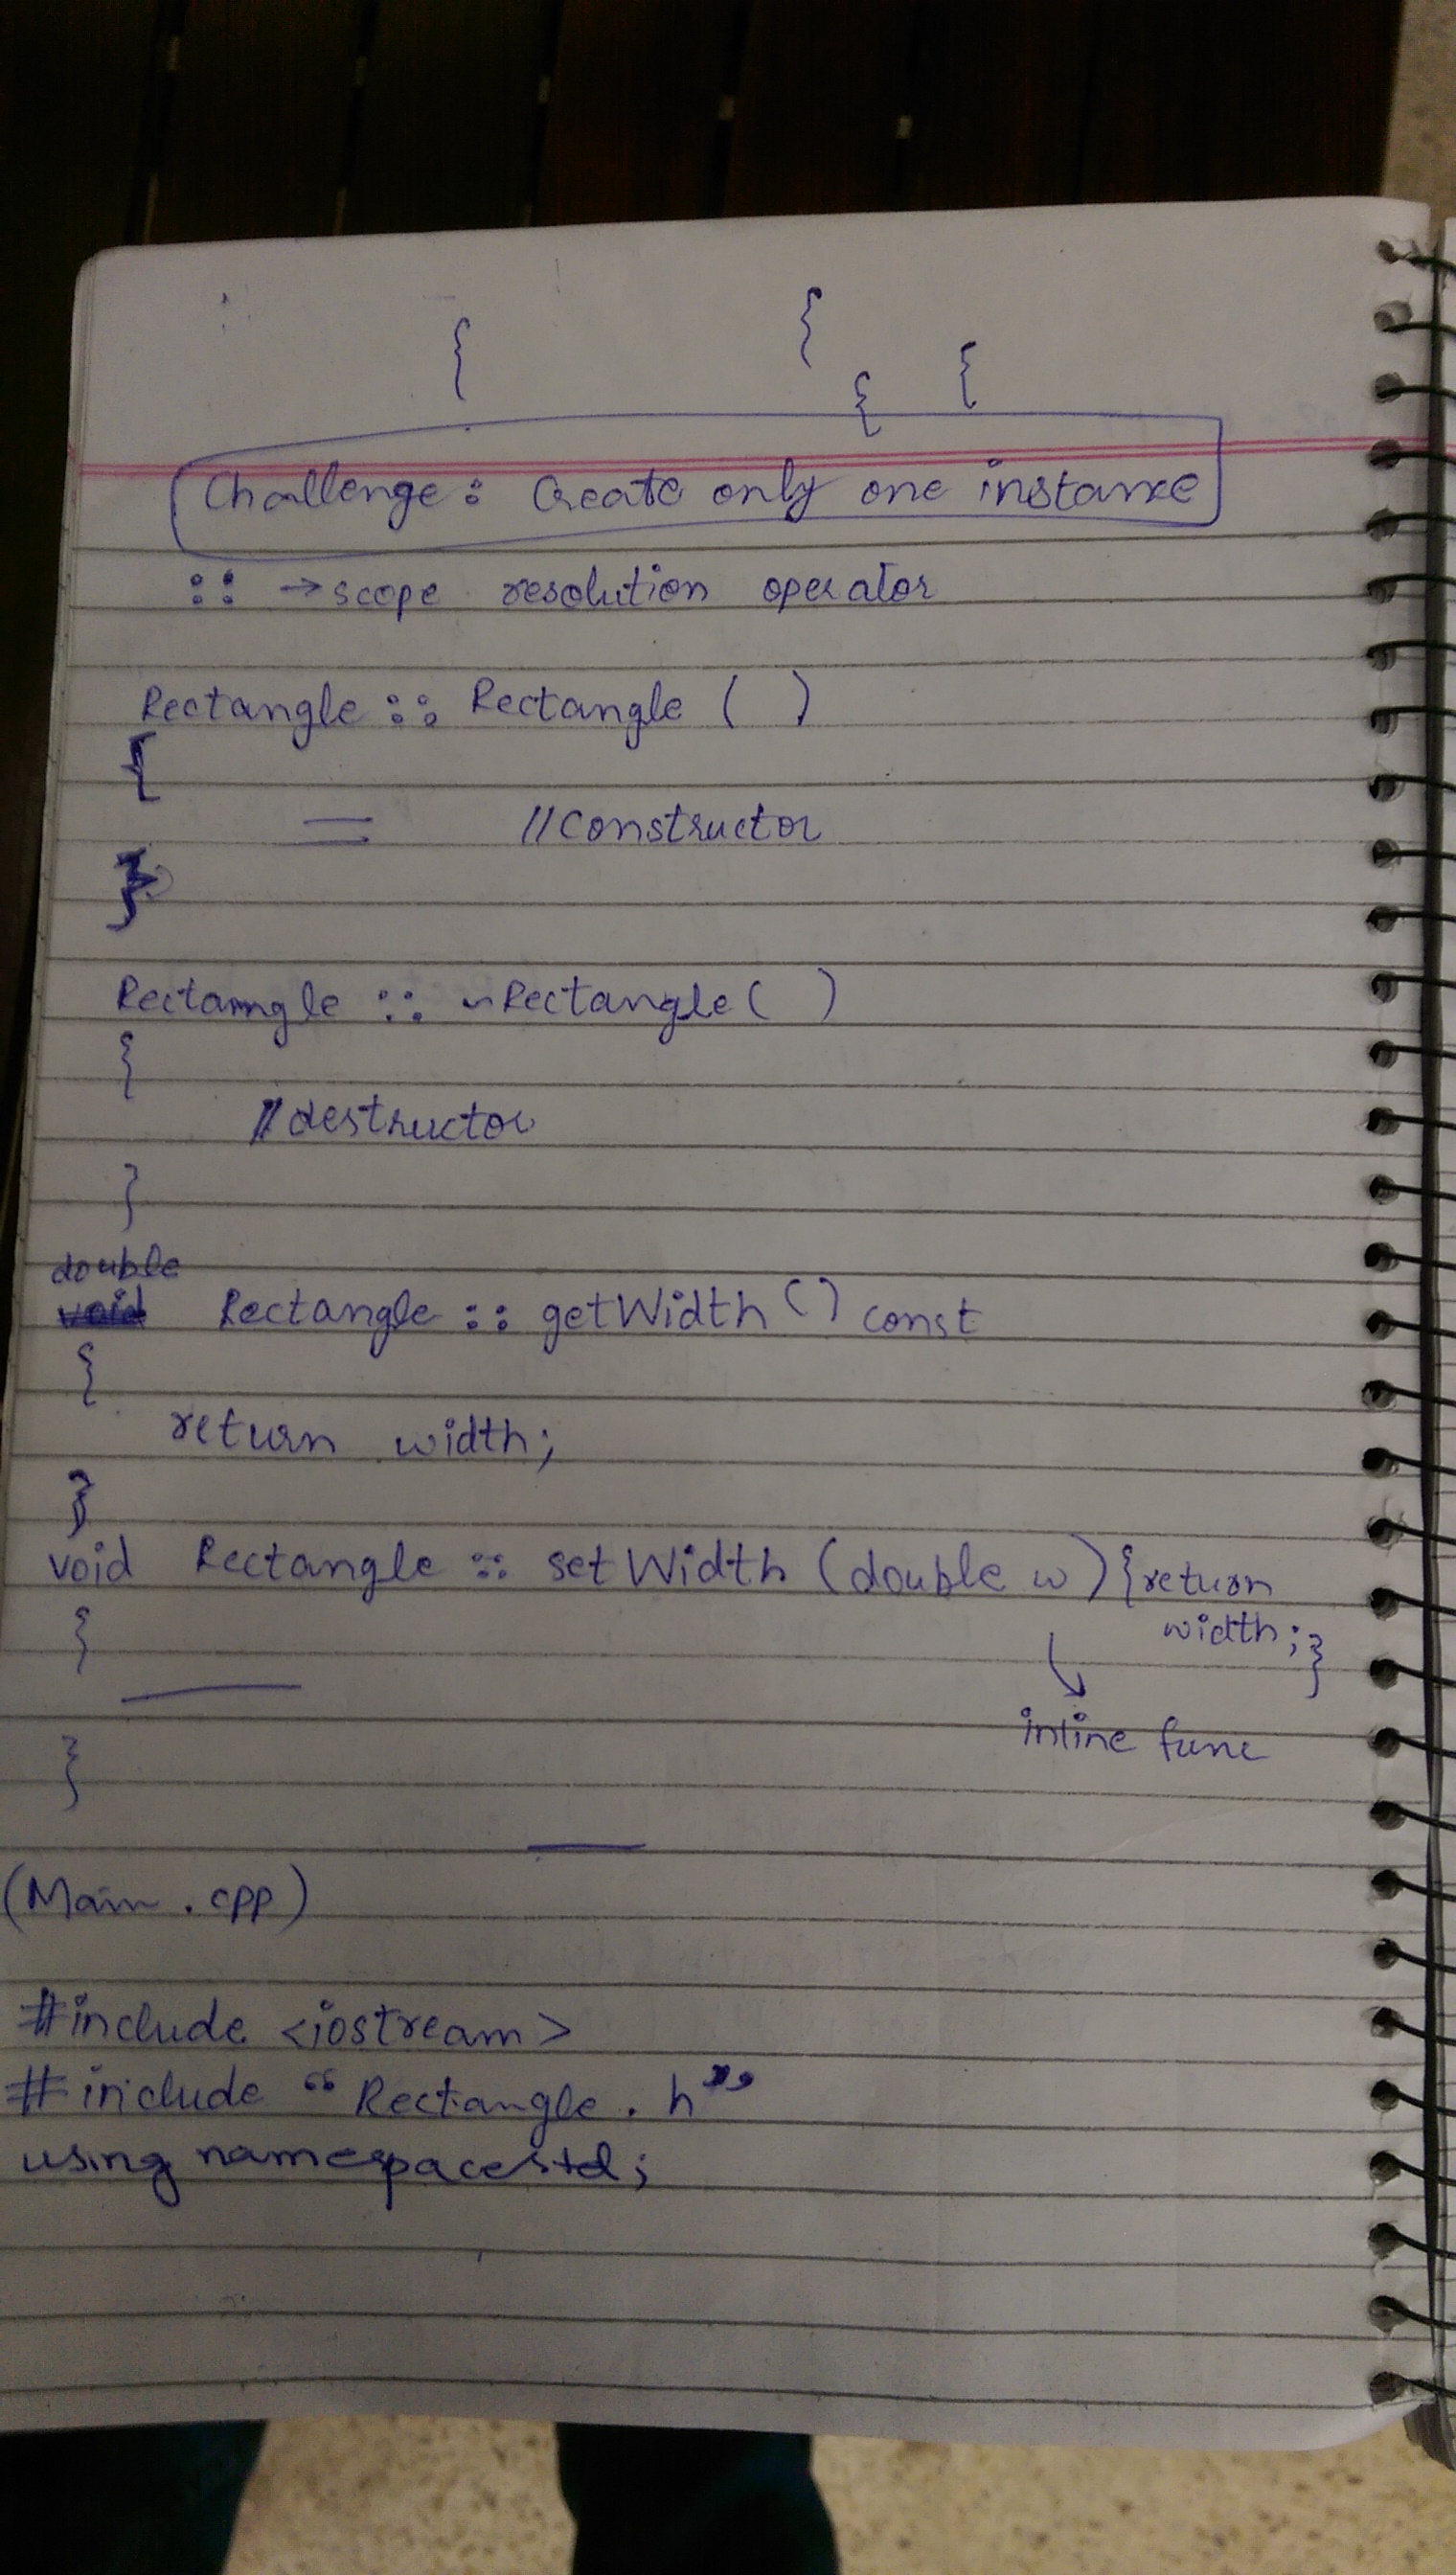 { {
{ {
Challenge: Create only one instance
:: → scope resolution operator
Rectangle :: Rectangle ( )
{
= //Constructor
}
Rectamgle :: ~Rectangle( )
{
//destructor
}
double
void Rectangle :: getWidth () const
{
return width;
}
void Rectangle :: setWidth (double w) {return
width;}
{
inline func
}
(Main.cpp)
#include <iostream>
#include "Rectangle.h"
using namespace std;